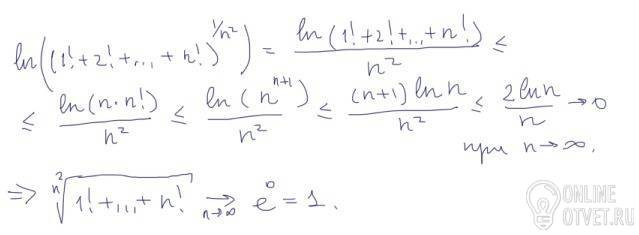 ln((1!+2!+...+n!)^{1/n²}) = ln(1!+2!+...+n!)/n² ≤
≤ ln(n·n!)/n² ≤ ln(n^{n+1})/n² ≤ (n+1) ln n/n² ≤ 2 ln n/n → 0
при n→∞.
⇒ \sqrt[n²]{1!+...+n!} →_{n→∞} e⁰ = 1.
ONLINE
OTVET.RU